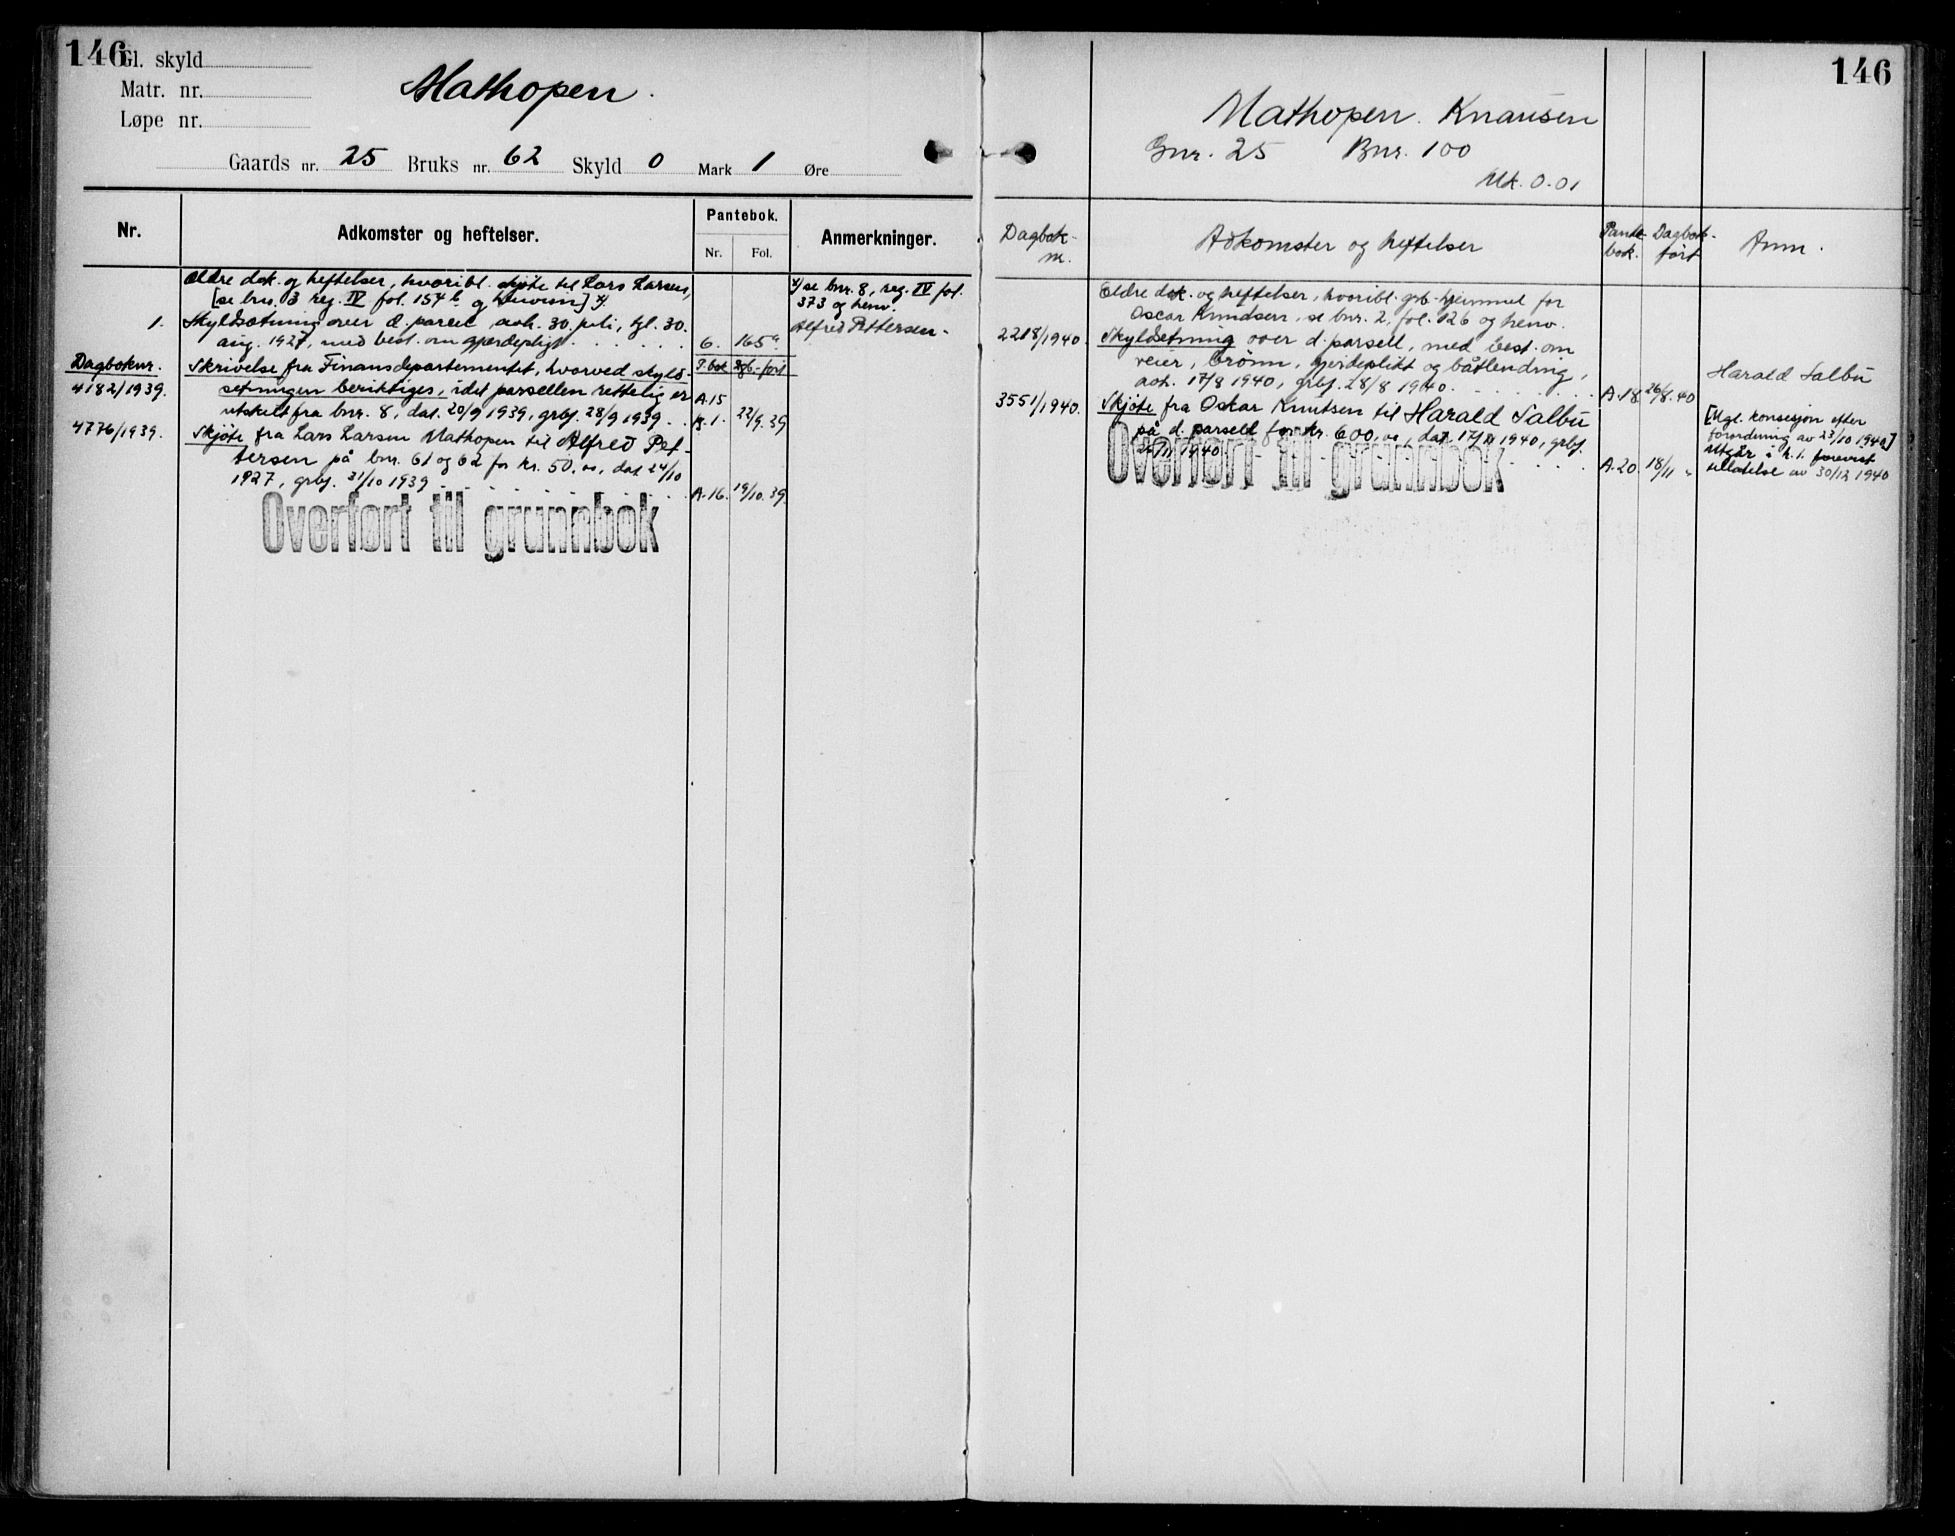 146
Gl. skyld
Matr. nr.
Løpe nr.
Mathopen.
Gaards nr. 25 Bruks nr. 62 Skyld 0 Mark 1 Øre
Nr.
Adkomster og heftelser.
Pantebok.
Nr. Fol.
Anmerkninger.
Ældre dok. og heftelser, hvoribl. skjöte til Lars Larsen,
[se bnr. 3 reg. IV fol. 154 b og henvisn] x).
x) se bnr. 8, reg. IV fol.
373 og henv.
1. Skyldsætning over d. parcel avh. 30. juli, tgl. 30.
aug. 1927, med best. om gjærdepligt 6. 165 a
Alfred Pettersen.
Dagboknr. P.bok Dgb.-ført
4182/1939. Skrivelse fra Finansdepartementet, hvorved skyld-
setningen beriktiges, idet parsellen rettelig er
utskelt fra bnr. 8, dat. 20/9 1939, grbf. 28/9 1939. A.15 R.1. 22/9.39
4776/1939. Skjöte fra Lars Larsen Mathopen til Alfred Pet-
tersen på bnr. 61 og 62 for kr. 50,00, dat 24/10
1927, grbf. 31/10 1939 A.16. 19/10.39
Overført til grunnbok
146
Mathopen. Knausen
Gnr. 25 Bnr. 100
Mk. 0.01
Dagbok-
nr.
Adkomster og heftelser
Pante-
bok.
Dagbok-
ført
Anm.
Eldre dok. og heftelser, hvoribl. grb. hjemmel for
Oscar Knudsen, se bnr. 2, fol. 126 og henv.
2218/1940. Skyldsetning over d. parsell, med best. om
veier, brönn, gjerdeplikt og båtlending,
avh. 17/8 1940, grbf. 28/8 1940. A.18 26/8.40
Harald Salbu
3551/1940. Skjöte fra Oskar Knutsen til Harald Salbu
på d. parsell for kr. 600,00, dat. 17/11 1940, grbf.
21/11 1940 A.20 18/11 "
[Mgl. konsesjon efter
forordning av 23/10 1940]
Utgår i h.t. forevist
tillatelse av 30/12 1940
Overført til grunnbok